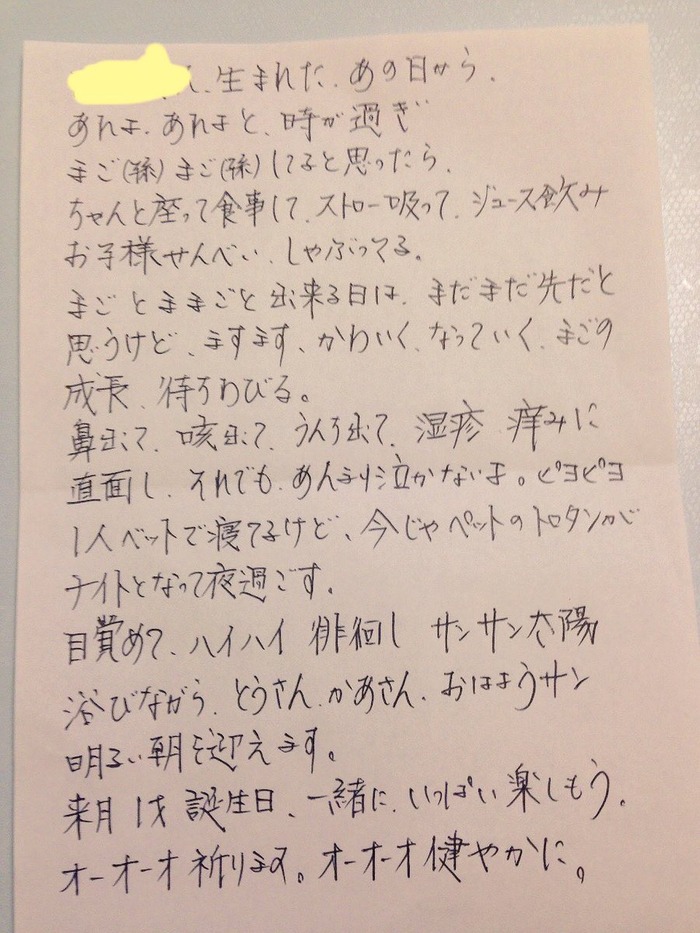 、生まれた、あの日から、
あれよ、あれよと、時が過ぎ
まご(孫)まご(孫)してると思ったら、
ちゃんと座って食事して、ストロー吸って、ジュース飲み
お子様せんべい、しゃぶってる。
まごとままごと出来る日は、まだまだ先だと
思うけど、ますます、かわいく、なっていく、まごの
成長、待ちわびる。
鼻出て、咳出て、うんち出て、湿疹 痒みに
直面し、それでも、あんまり泣かないよ。ピヨピヨ
1人ベットで寝てるけど、今じゃペットのトロタンが
ナイトとなって夜過ごす。
目覚めて、ハイハイ 徘徊し サンサン太陽
浴びながら、とうさん、かあさん、おはようサン
明るい朝を迎えます。
来月1才 誕生日、一緒に、いっぱい楽しもう。
オーオーオ祈ります。オーオーオ健やかに。